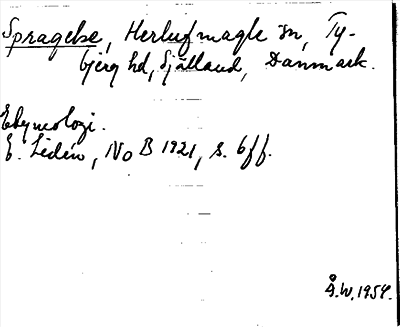 Spragelse, Herlufmagle sn, Ty-
bjerg hd, Själland, Danmark.
Etymologi.
E. Lidén, NoB 1921, s. 6ff.
Å.W. 1954.